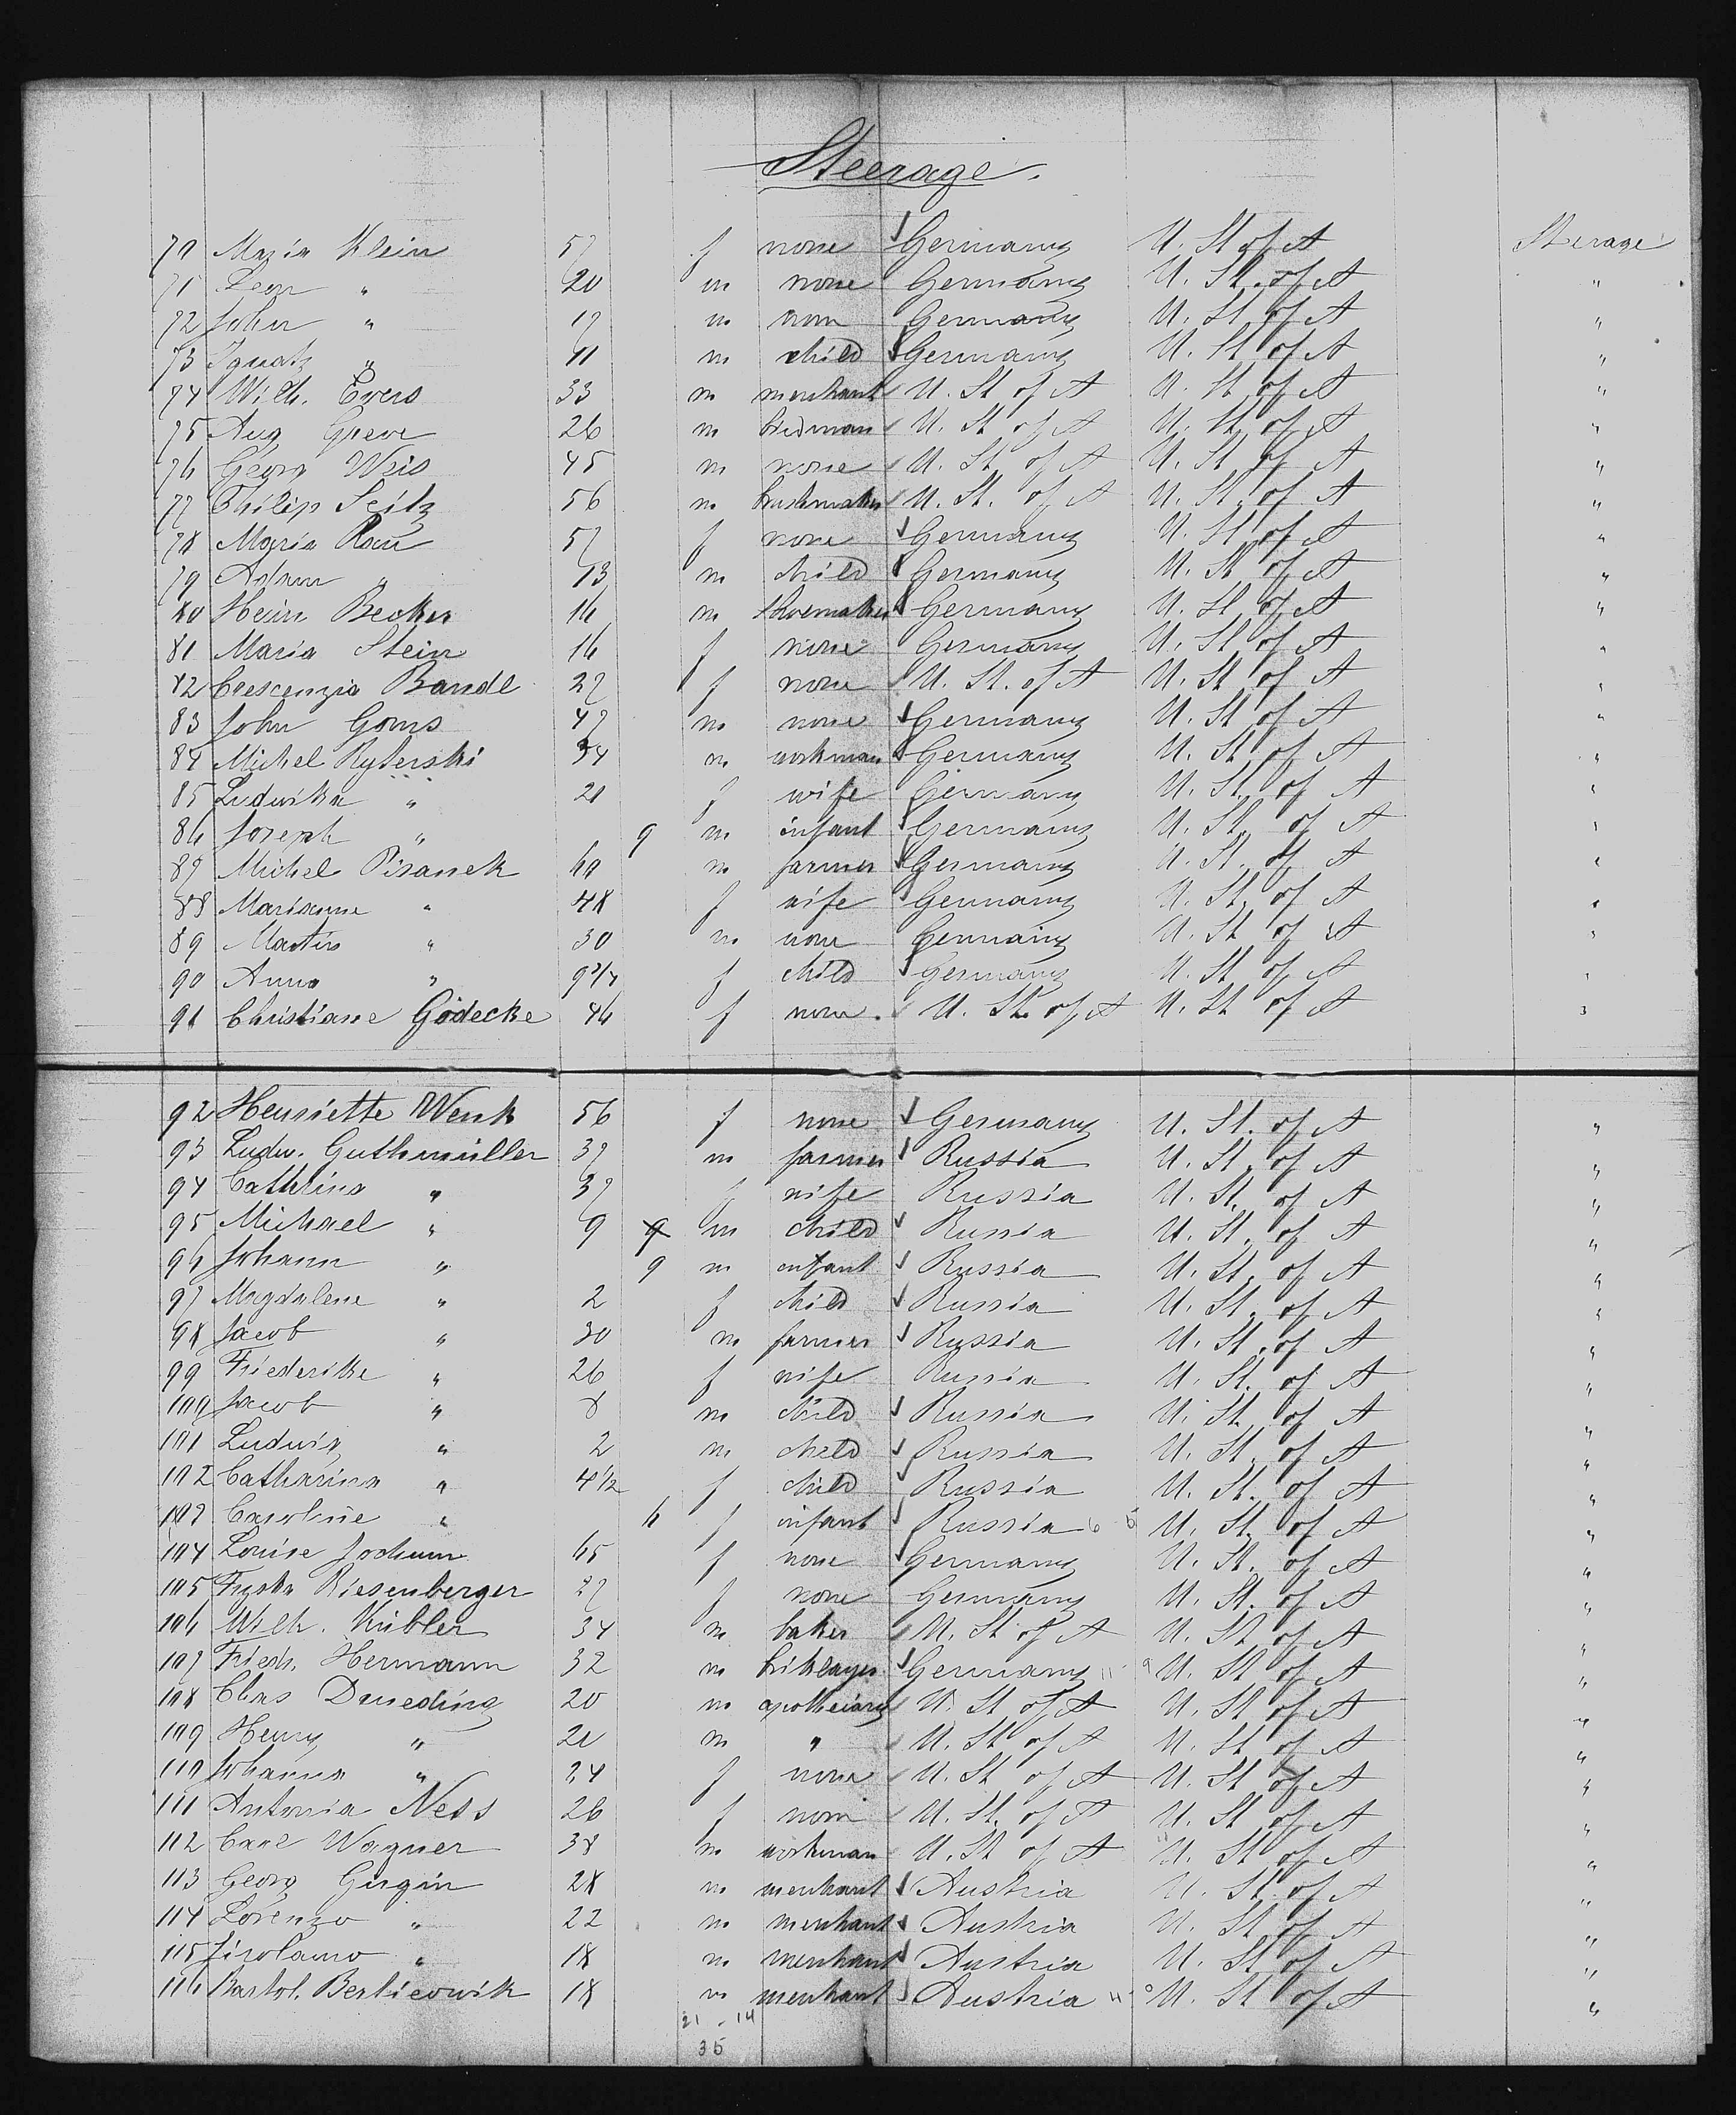 Steerage.
70 Maria Klein 57 f none Germany U. St of A Sterage
71 Leon " 20 m none Germany U. St. of A "
72 John " 17 m non Germany U. St of A "
73 Ignatz " 11 m child Germany U. St of A "
74 Wilh. Evers 33 m merchant U. St of A U. St of A "
75 Aug Greve 26 m U. St of A U. St of A "
76 Georg Weis 45 m none U. St of A U. St of A "
77 Philip Seitz 56 m brushmaker U. St. of A U. St. of A "
78 Maria Rau 57 f none Germany U. St of A "
79 Adam " 13 m child Germany U. St of A "
80 Heinr Becker 16 m shoemaker Germany U. St of A "
81 Maria Stein 16 f none Germany U. St of A "
82 Crescenzia Bandl 27 f none U. St. of A U. St of A "
83 John Goms 47 m none Germany U. St of A "
84 Michel Ryterski 34 m workman Germany U. St of A "
85 Ludwika " 21 f wife Germany U. St. of A "
86 Joseph " 9 m infant Germany U. St. of A "
87 Michel Pisanek 60 m farmer Germany U. St. of A "
88 Marianne " 48 f wife Germany U. St. of A "
89 Martin " 30 m none Germany U. St of A "
90 Anna " 9 3/4 f child Germany U. St of A "
91 Christiane Gödecke 46 f none. U. St. of A U. St of A "
92 Henriette Wenk 56 f none Germany U. St. of A "
93 Ludw. Guthmüller 37 m farmer Russia U. St. of A "
94 Cathrina " 37 f wife Russia U. St. of A "
95 Michael " 9 9 m child Russia U. St. of A "
96 Johann " 9 m infant Russia U. St. of A "
97 Magdalene " 2 f child Russia U. St. of A "
98 Jacob " 30 m farmer Russia U. St. of A "
99 Friederike " 26 f wife Russia U. St. of A "
100 Jacob " 8 m child Russia U. St. of A "
101 Ludwig " 2 m child Russia U. St. of A "
102 Catharina " 4 1/2 f child Russia U. St. of A "
103 Caroline " 6 f infant Russia U. St. of A "
104 Louise Jochum 65 f none Germany U. St. of A "
105 Riesenberger 27 f none Germany U. St. of A "
106 Wilh. Kübler 34 m baker U. St of A U. St of A "
107 Friedr. Hermann 32 m briklayer Germany U. St of A "
108 Clas 20 m apotheiary U. St of A U. St of A "
109 Henry " 21 m " U. St of A U. St of A "
110 Johanna " 24 f none U. St of A U. St of A "
111 Antonia Ness 26 f non U. St. of A U. St of A "
112 Carl Wagner 38 m workman U. St of A U. St of A "
113 Georg Gugin 28 m merchant Austria U. St of A "
114 Lorenzo " 22 m merchant Austria U. St of A "
115 Jirolamo " 18 m merchant Austria U. St of A "
116 Bartol. Berticowik 18 m merchant Austria U. St of A "
21 . 14
35